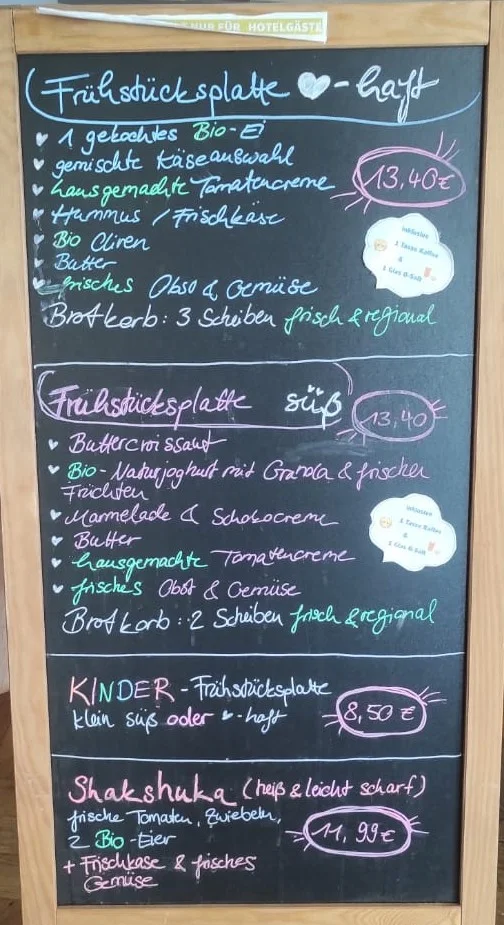 NUR FÜR HOTELGÄSTE
Frühstücksplatte ♥-haft
1 gekochtes Bio-Ei
gemischte Käseauswahl
hausgemachte Tomatencreme
13,40€
Hummus / Frischkäse
Bio Oliven
Butter
frisches Obst & Gemüse
inklusive
1 Tasse Kaffee
&
1 Glas O-Saft
Brotkorb: 3 Scheiben frisch & regional
Frühstücksplatte süß
13,40
Buttercroissant
Bio-Naturjoghurt mit Granola & frischen
Früchten
Marmelade & Schokocreme
Butter
hausgemachte Tomatencreme
frisches Obst & Gemüse
inklusive
1 Tasse Kaffee
&
1 Glas O-Saft
Brotkorb: 2 Scheiben frisch & regional
KINDER-Frühstücksplatte
klein süß oder ♥-haft
8,50 €
Shakshuka (heiß & leicht scharf)
frische Tomaten, Zwiebeln,
2 Bio-Eier
11,99€
+ Frischkäse & frisches
Gemüse